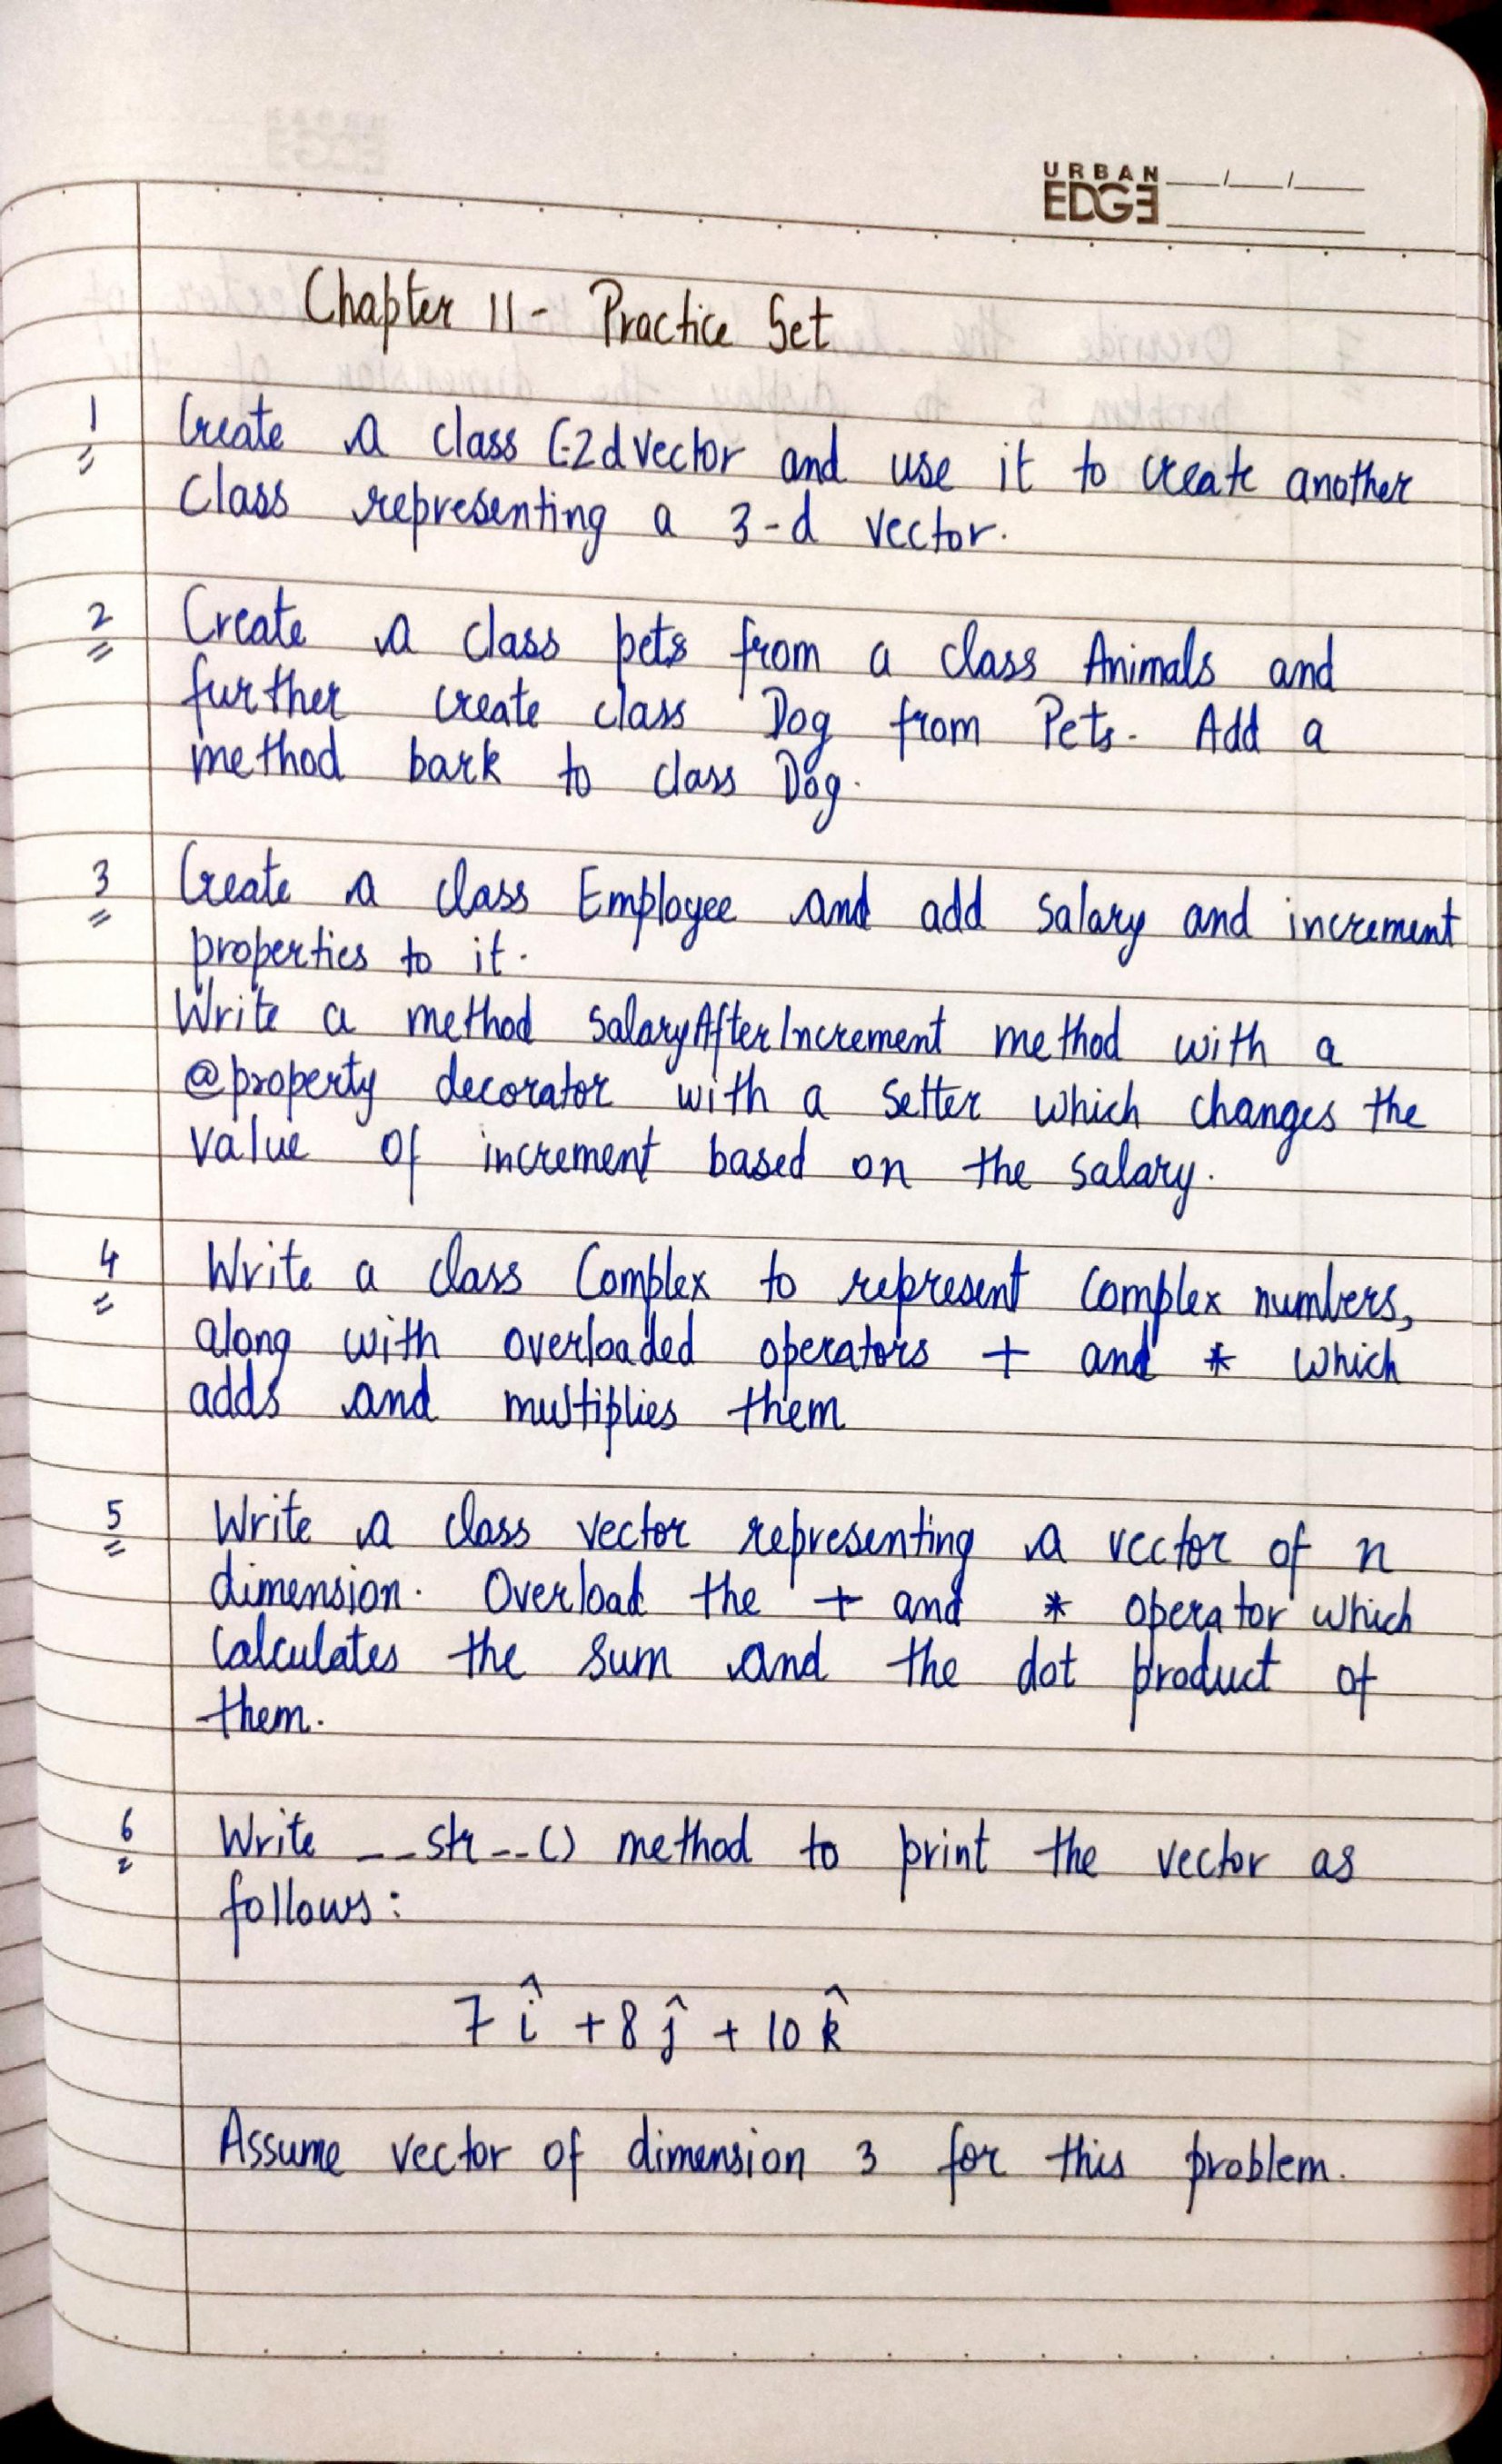 URBAN
EDGE
Chapter 11 - Practice Set
1 Create a class C-2dVector and use it to create another
class representing a 3-d vector.
2 Create a class pets from a class Animals and
further create class Dog from Pets. Add a
method bark to class Dog.
3 Create a class Employee and add salary and increment
properties to it.
Write a method SalaryAfterIncrement method with a
@property decorator with a setter which changes the
value of increment based on the salary.
4 Write a class Complex to represent complex numbers,
along with overloaded operators + and * which
adds and multiplies them
5 Write a class vector representing a vector of n
dimension. Overload the + and * operator which
calculates the sum and the dot product of
them.
6 Write __str__() method to print the vector as
follows:
7 î + 8 ĵ + 10 k̂
Assume vector of dimension 3 for this problem.